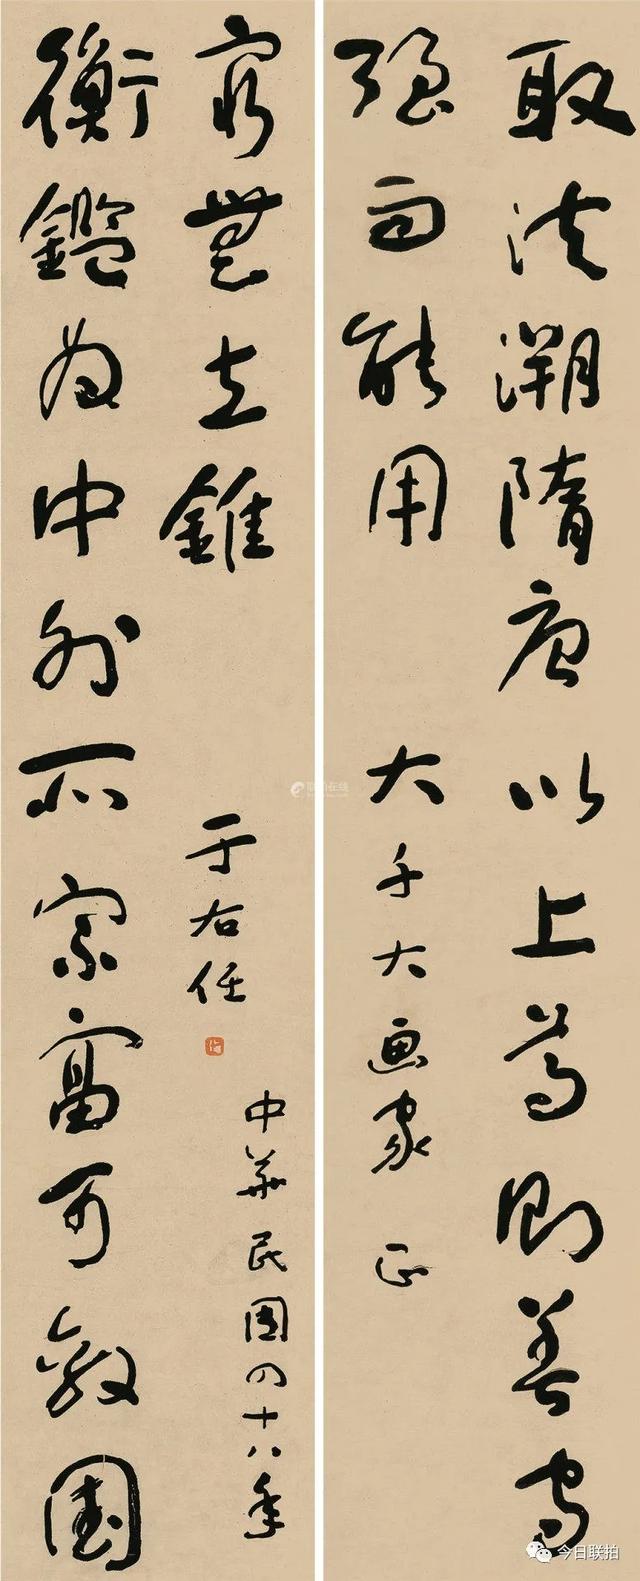 取法溯隋唐以上則善守
強而能用
大千大畫家 正
衡鑑為中外所宗富可敵國
窮無立錐
于右任
中華民國四十八年
今日联拍